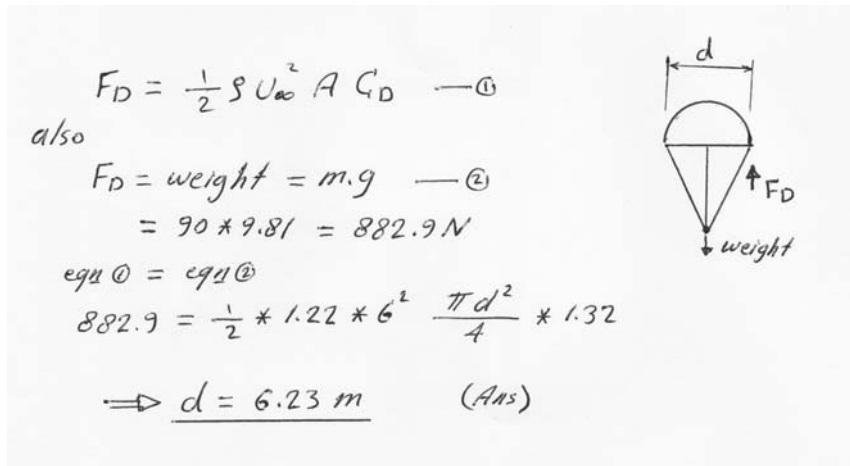 F_D = 1/2 ρ U∞² A C_D —①
also
F_D = weight = m.g —②
= 90 * 9.81 = 882.9 N
eqn ① = eqn ②
882.9 = 1/2 * 1.22 * 6² πd²/4 * 1.32
⇒ d = 6.23 m (Ans)
d
F_D
weight